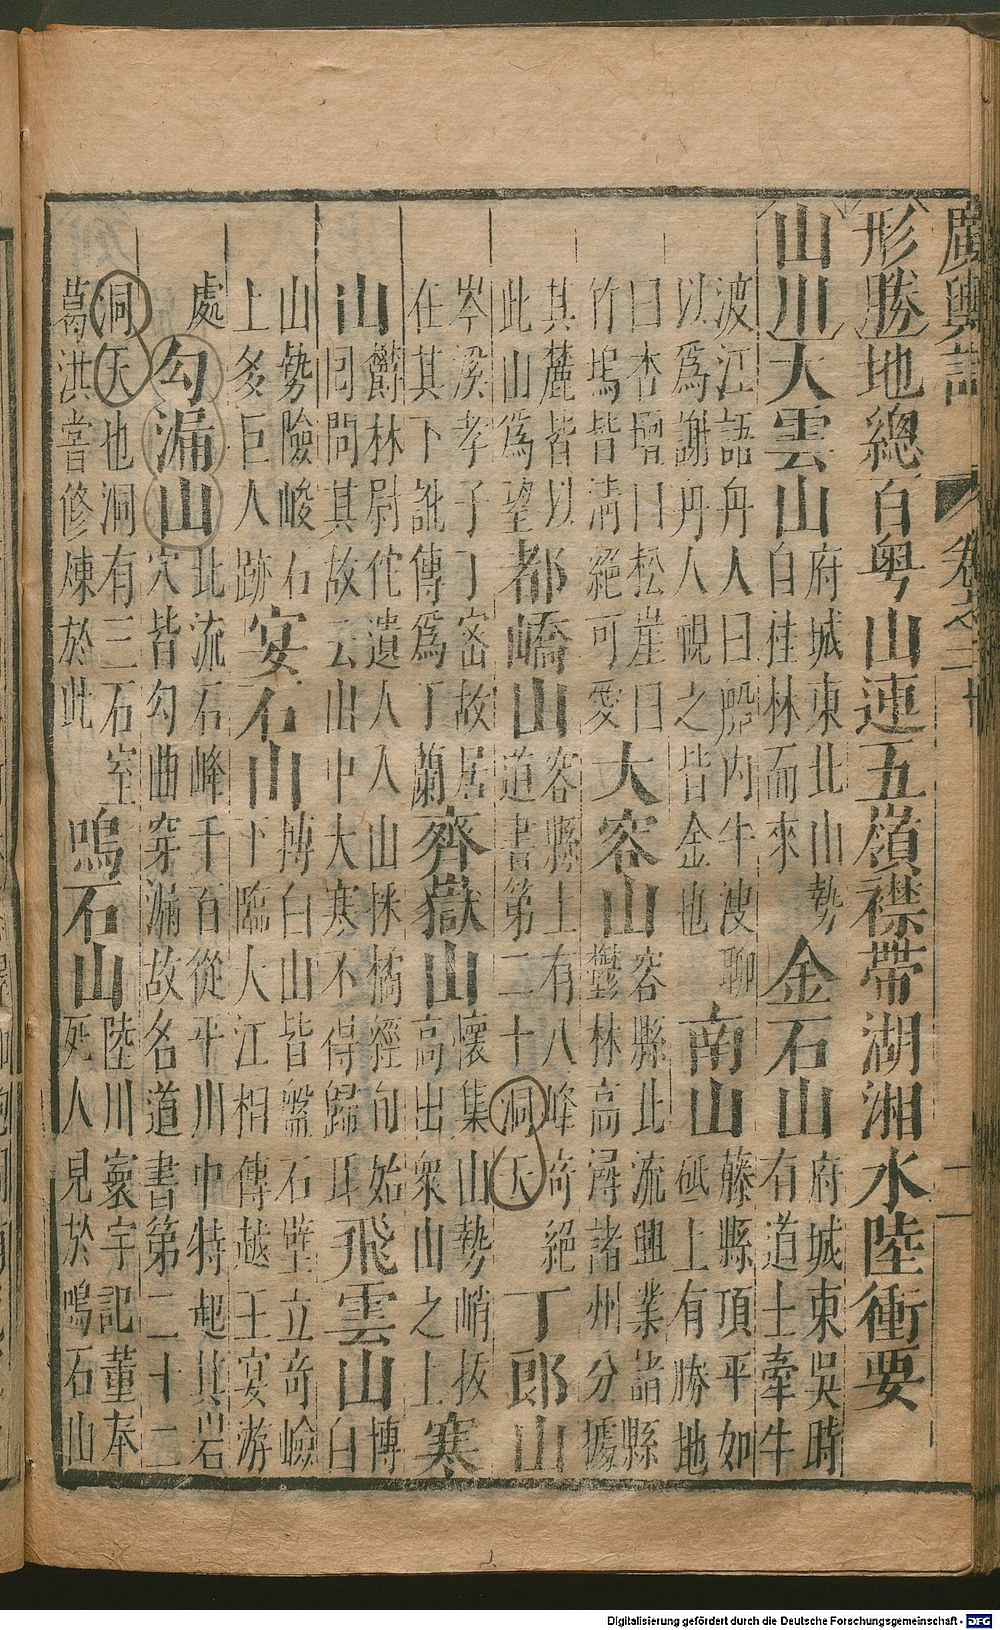 廣輿記 卷之二十
形勝地總百粤山連五嶺襟帶湖湘水陸衝要
山川大雲山府城東北山勢自桂林而來金石山府城東吳時有道士牽牛
渡江語舟人曰船内牛溲聊以爲謝舟人視之皆金也南山藤縣頂平如砥上有勝地
曰杏壇曰松崖曰竹塢皆清絕可愛大容山容縣北流興業諸縣鬱林高潯諸州分據
其麓皆以此山爲望都嶠山容縣上有八峰竒絕道書第二十洞天丁郎山
岑溪孝子丁密故居在其下訛傳爲丁蘭齊嶽山懷集山勢峭拔高出衆山之上寒
山鬱林尉佗遺人入山採橘經旬始囘問其故云山中大寒不得歸耳飛雲山博白
山勢險峻石上多巨人跡宴石山博白山皆盤石壁立竒嶮下臨大江相傳越王宴游
處勾漏山北流石峰千百從平川中特起其岩穴皆勾曲穿漏故名道書第二十二
洞天也洞有三石室葛洪嘗修煉於此鳴石山陸川寰宇記董奉死人見於鳴石山
Digitalisierung gefördert durch die Deutsche Forschungsgemeinschaft - DFG